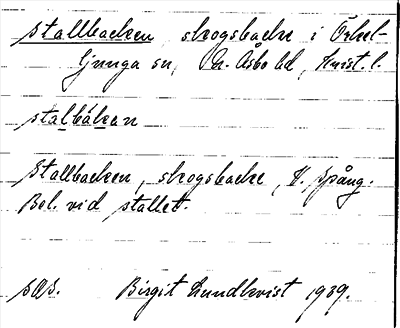 Stallbacken, skogsbacke i Örkel-
ljunga sn, N. Åsbo hd, Krist. l.
stalbákan
Stallbacken, skogsbacke, H. Spång.
Bel. vid stallet.
SOS. Birgit Lundkvist 1939.